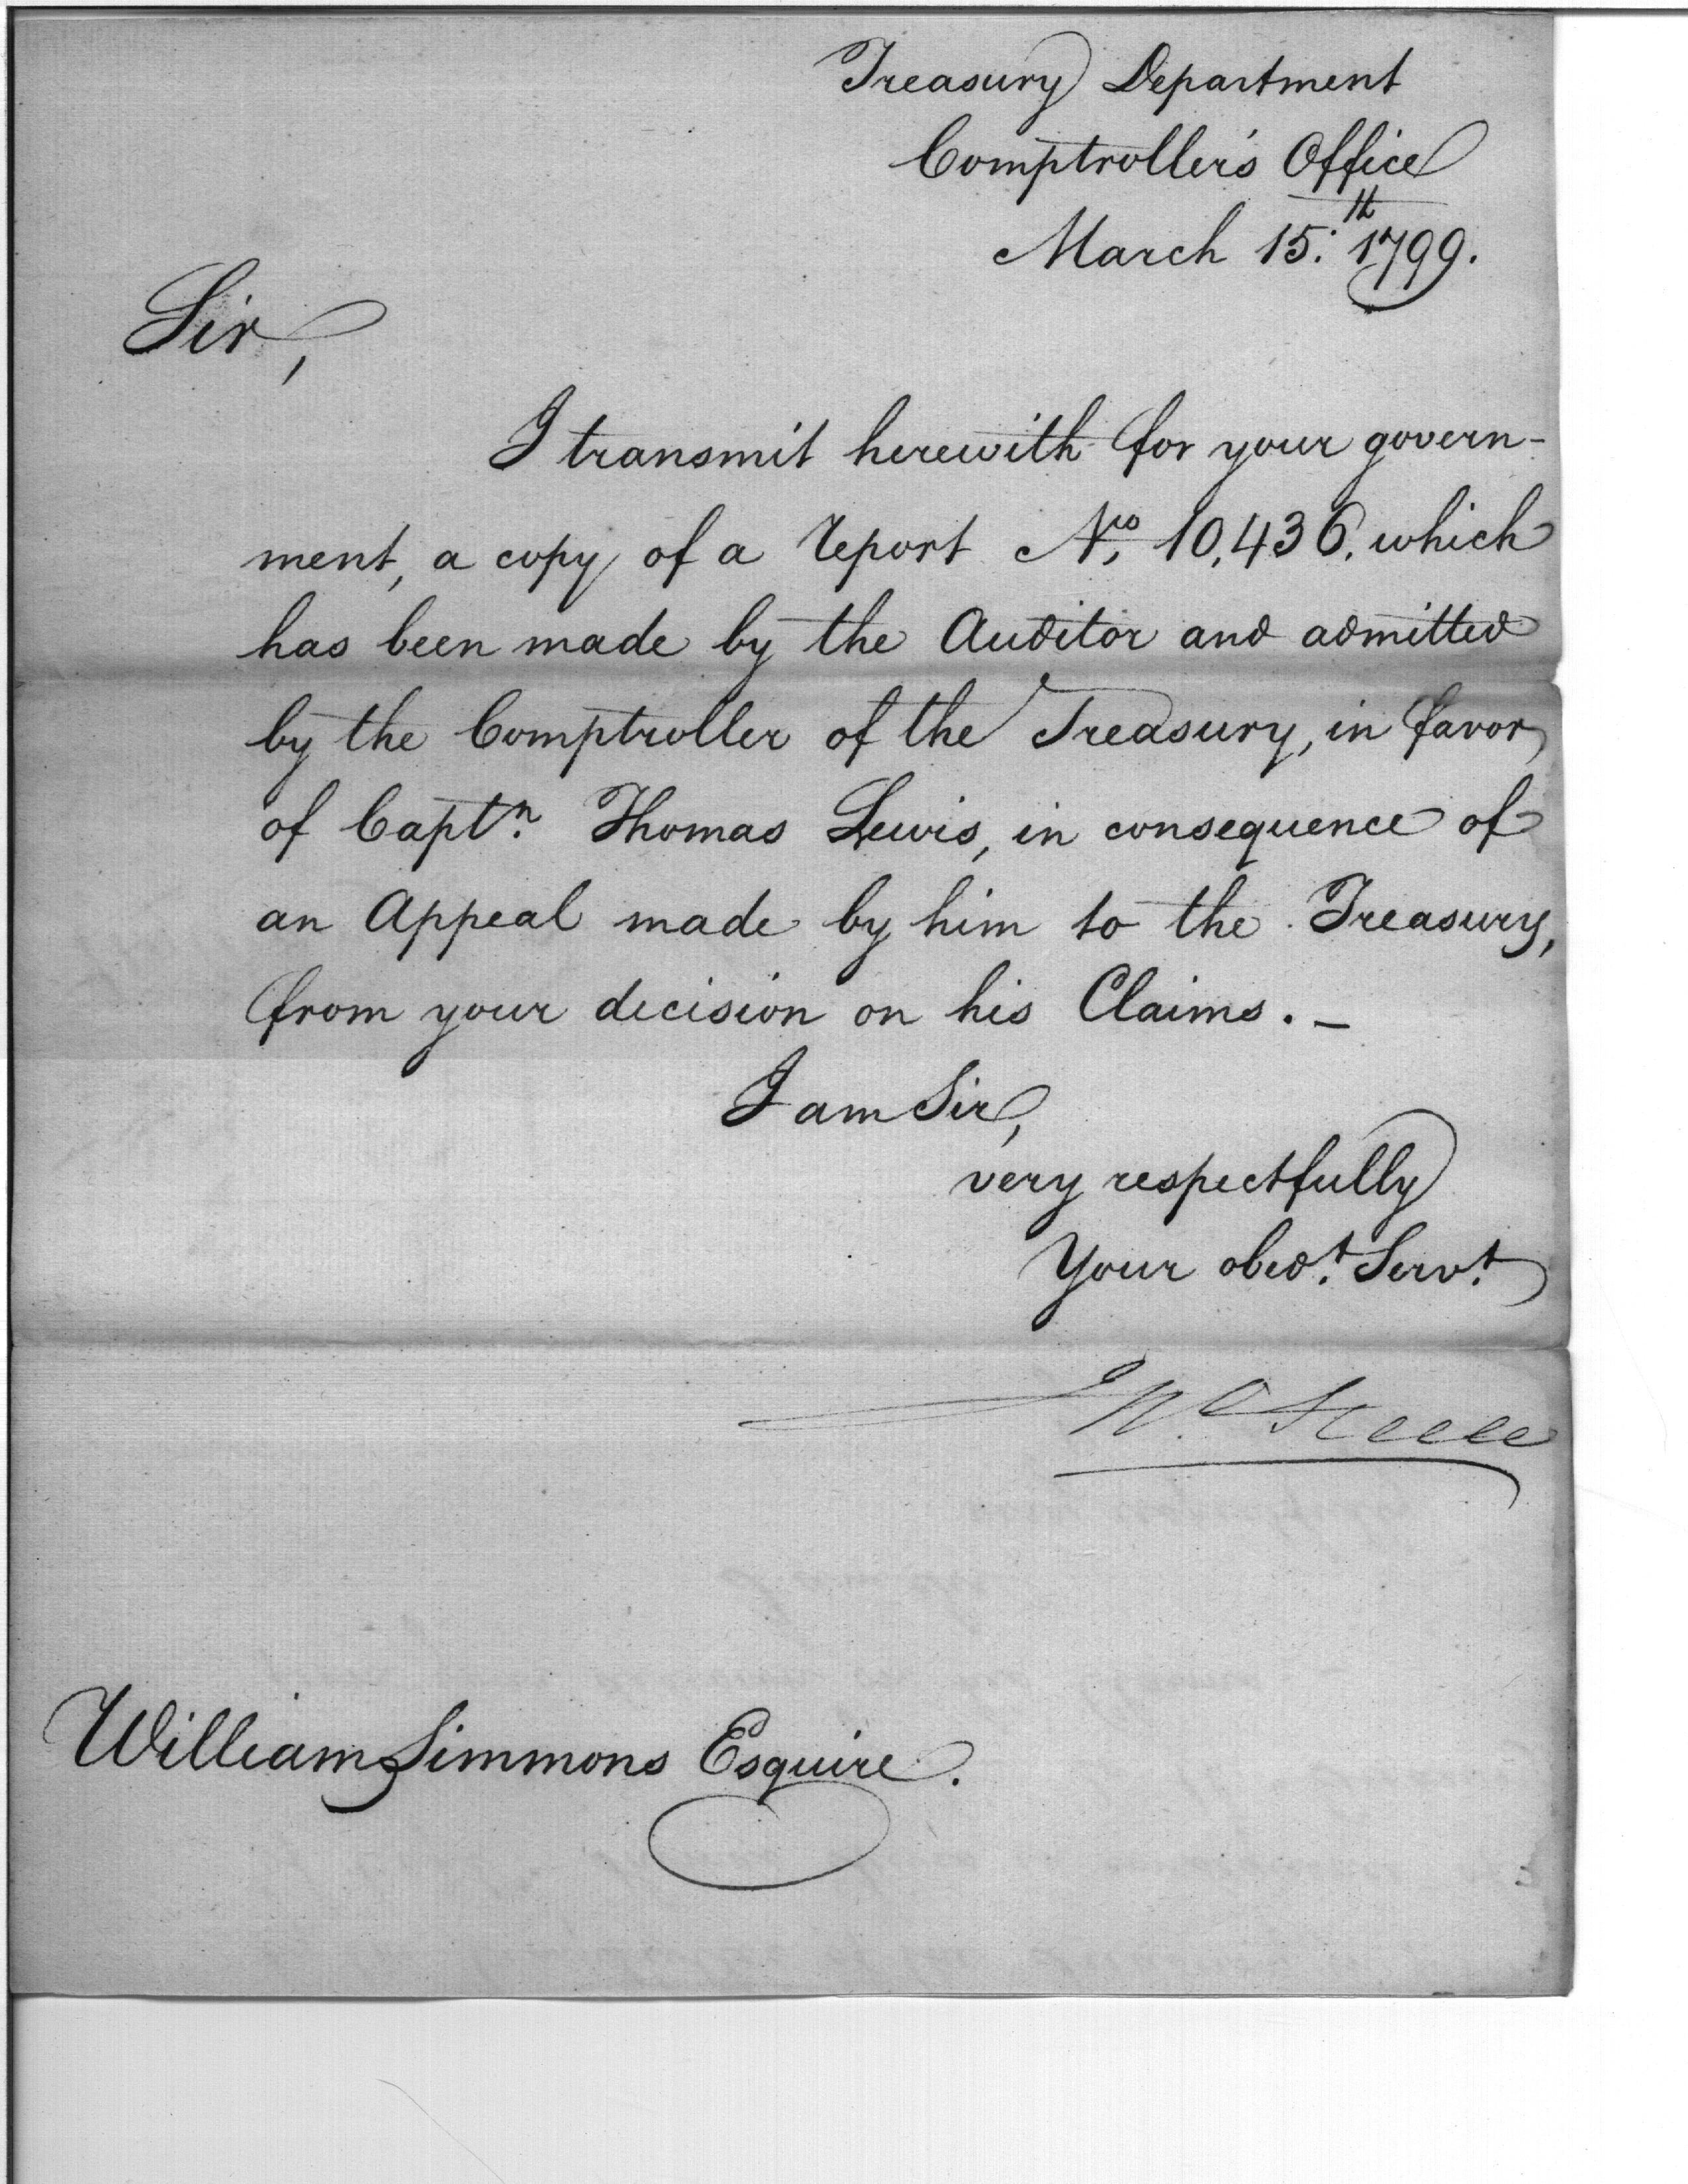 Treasury Department
Comptroller's Office
March 15th 1799.
Sir,
I transmit herewith for your govern-
ment, a copy of a report No. 10,436. which
has been made by the Auditor and admitted
by the Comptroller of the Treasury, in favor
of Captn. Thomas Lewis, in consequence of
an Appeal made by him to the Treasury,
from your decision on his Claims. –
I am Sir,
very respectfully
Your obedt. Servt.
Jno. Steele
William Simmons Esquire.